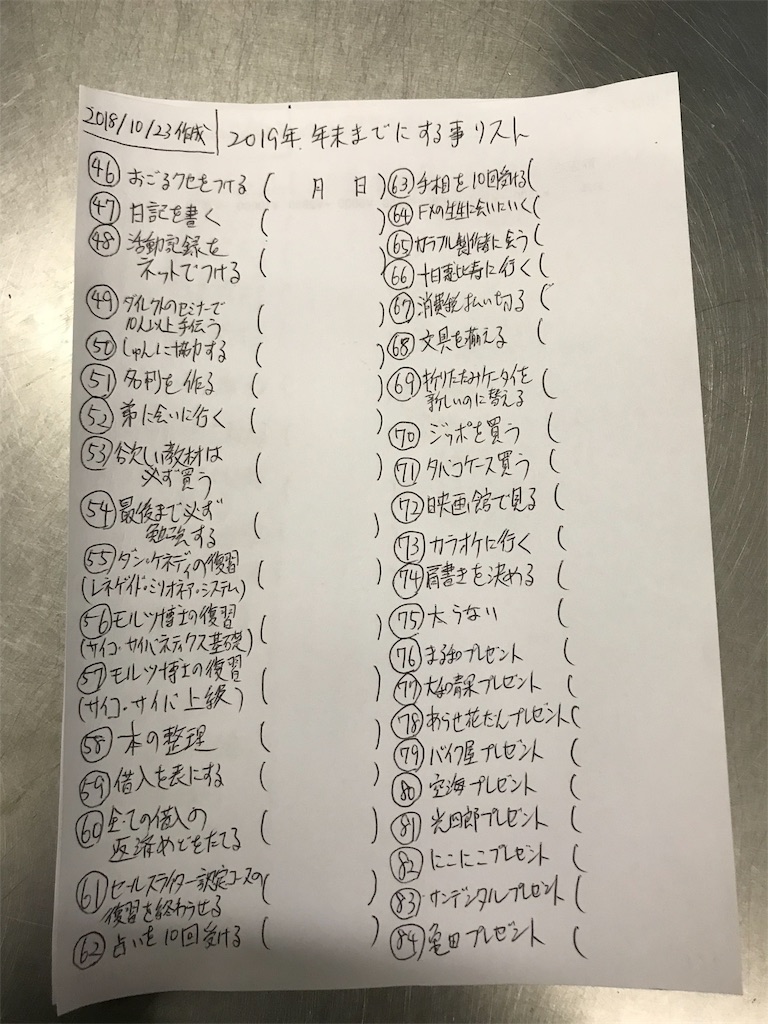 2018/10/23作成
2019年 年末までにする事リスト
㊻ おごるクセをつける ( 月 日 )
㊼ 日記を書く ( )
㊽ 活動記録を
ネットでつける ( )
㊾ ダイレクトのセミナーで
10人以上手伝う ( )
㊿ しゅんに協力する ( )
51 名刺を作る ( )
52 弟に会いに行く ( )
53 欲しい教材は
必ず買う ( )
54 最後まで必ず
勉強する ( )
55 ダン・ケネディの復習
(レネゲイド・ミリオネア・システム) ( )
56 モルツ博士の復習
(サイコ・サイバネティクス基礎) ( )
57 モルツ博士の復習
(サイコ・サイバ上級) ( )
58 本の整理 ( )
59 借入を表にする ( )
60 全ての借入の
返済めどをたてる ( )
61 セールスライター認定コースの
復習を終わらせる ( )
62 占いを10回受ける ( )
63 手相を10回受ける (
64 FXの先生に会いにいく (
65 カラフル製作者に会う (
66 十日恵比寿に行く (
67 消費税払い切る (
68 文具を揃える (
69 折りたたみケータイを
新しいのに替える (
70 ジッポを買う (
71 タバコケース買う (
72 映画館で見る (
73 カラオケに行く (
74 肩書きを決める (
75 太らない (
76 まる和プレゼント (
77 大和青果プレゼント (
78 あらせ花たんプレゼント (
79 バイク屋プレゼント (
80 空海プレゼント (
81 光四郎プレゼント (
82 にこにこプレゼント (
83 サンデンタルプレゼント (
84 亀田プレゼント (